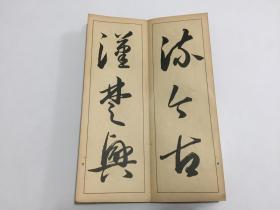 流今古
漢楚興